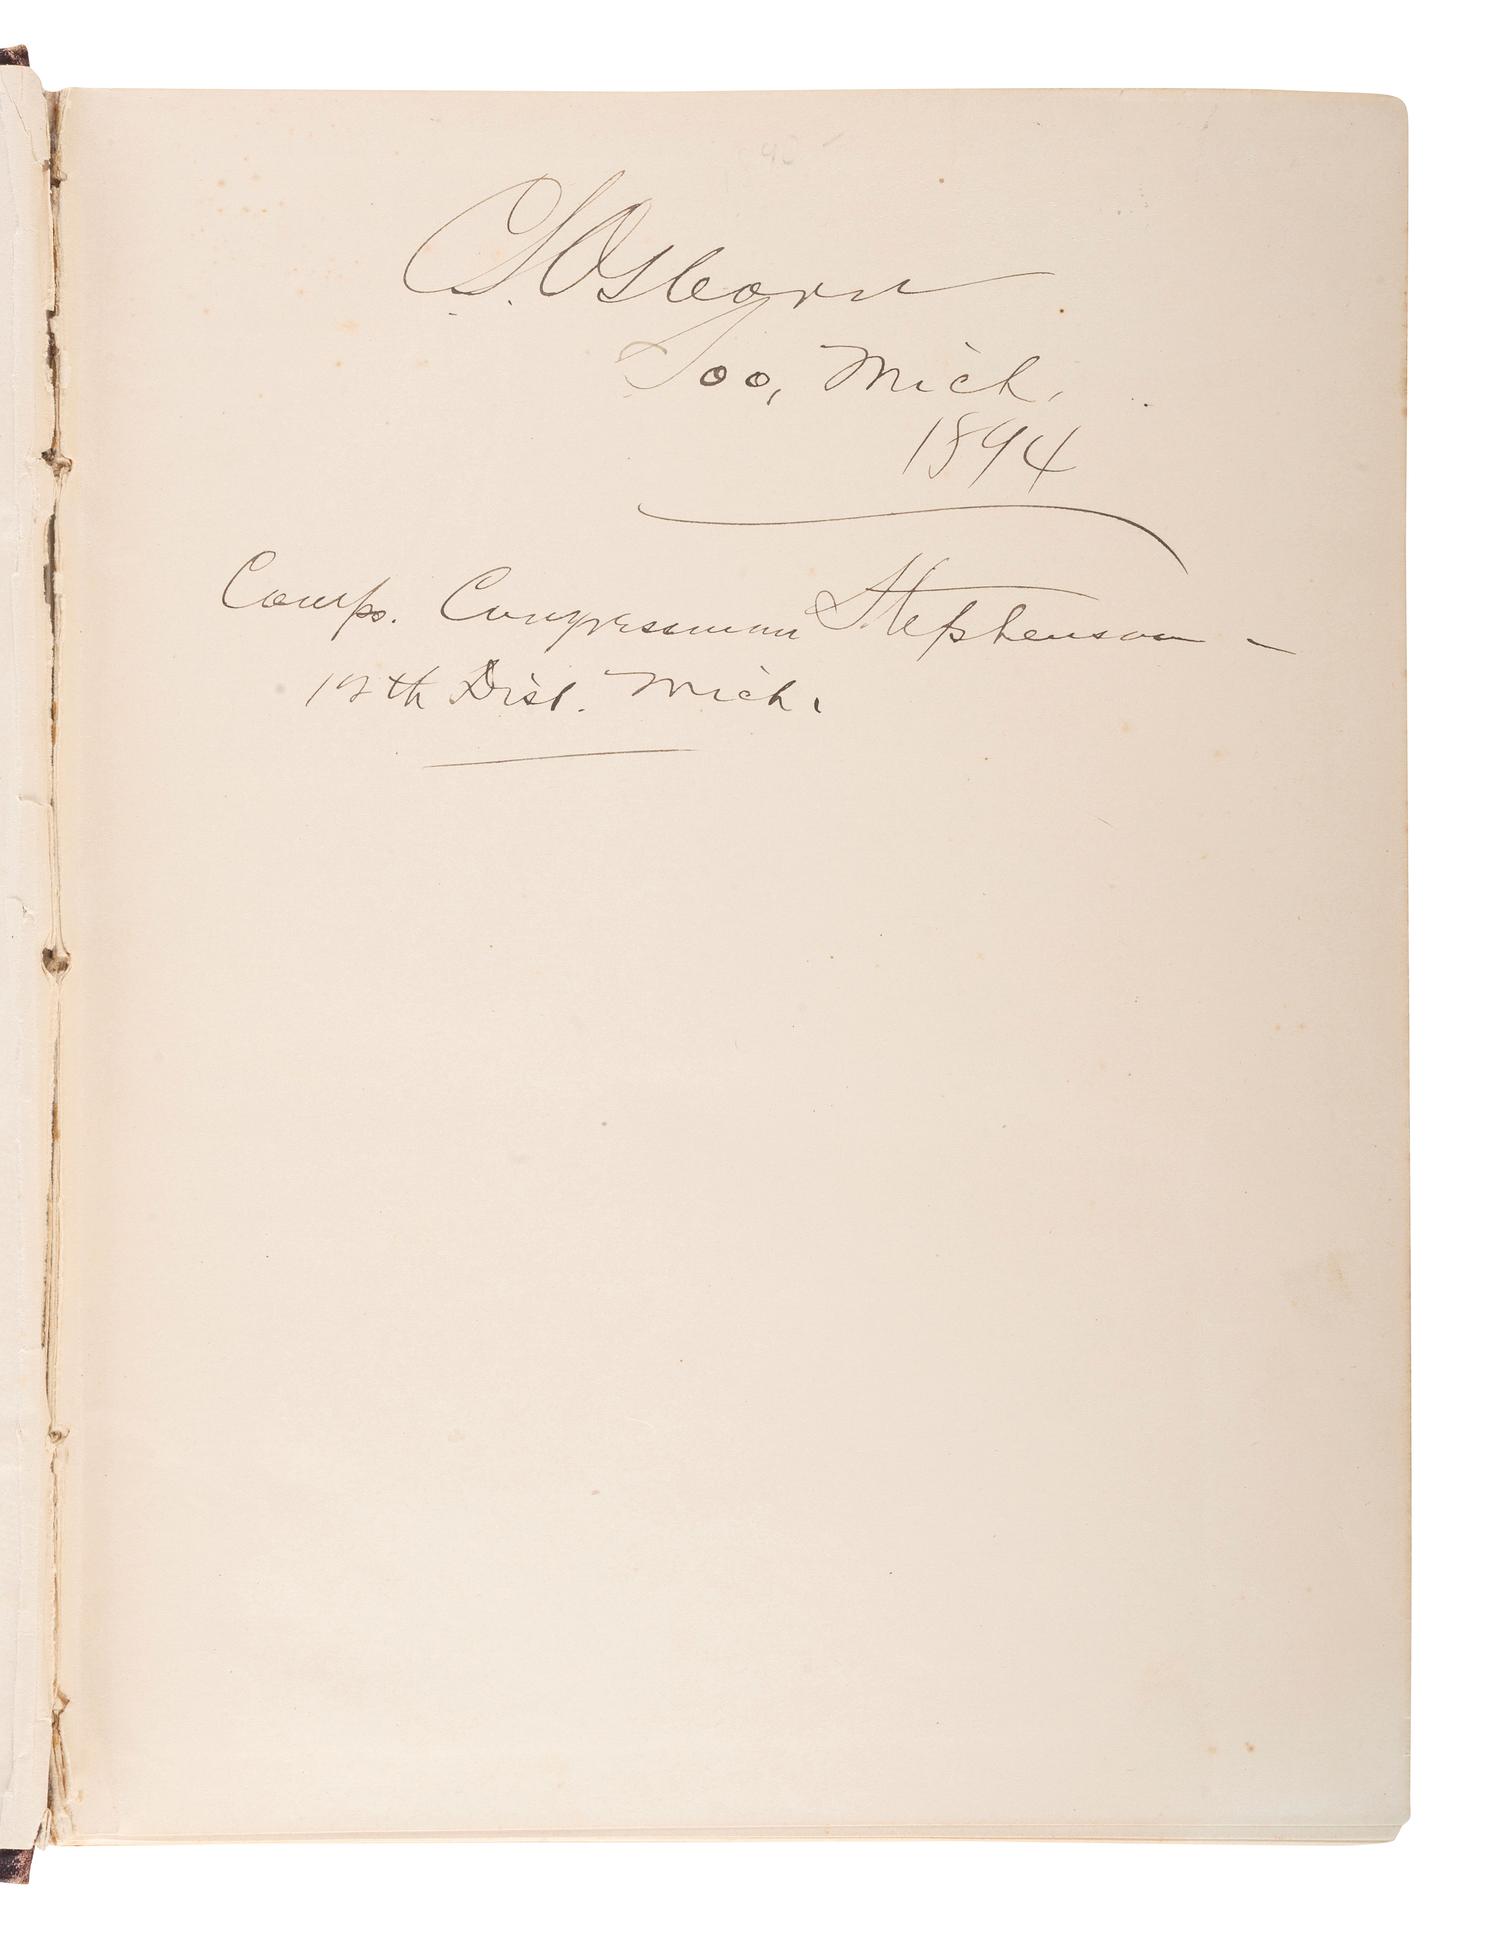 C.S. Osborn
Soo, Mich.
1894
Comp. Congressman Stephenson -
12th Dist. Mich.